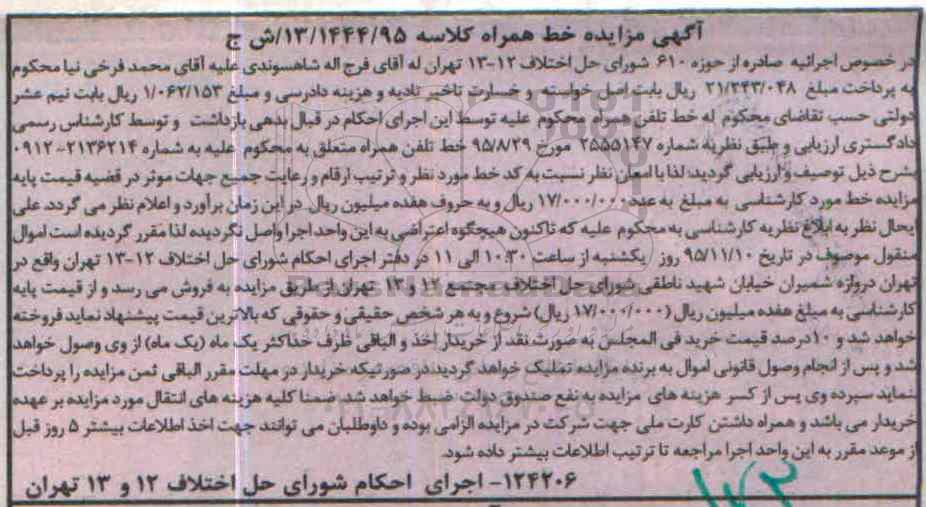 آگهی مزایده خط همراه کلاسه ۱۳/۱۴۴۴/۹۵/ش ج
در خصوص اجرائیه صادره از حوزه ۶۱۰ شورای حل اختلاف ۱۲-۱۳ تهران له آقای فرج اله شاهسوندی علیه آقای محمد فرخی نیا محکوم
به پرداخت مبلغ ۲۱/۲۴۳/۰۴۸ ریال بابت اصل خواسته و خسارت تاخیر تادیه و هزینه دادرسی و مبلغ ۱/۰۶۲/۱۵۳ ریال بابت نیم عشر
دولتی حسب تقاضای محکوم له خط تلفن همراه محکوم علیه توسط این اجرای احکام در قبال بدهی بازداشت و توسط کارشناس رسمی
دادگستری ارزیابی و طبق نظریه شماره ۲۵۵۵۱۴۷ مورخ ۹۵/۸/۲۹ خط تلفن همراه متعلق به محکوم علیه به شماره ۰۹۱۲-۲۱۳۶۲۱۴
بشرح ذیل توصیف و ارزیابی گردید: لذا با امعان نظر نسبت به کد خط مورد نظر و ترتیب ارقام و رعایت جمیع جهات موثر در قضیه قیمت پایه
مزایده خط مورد کارشناسی به مبلغ به عدد ۱۷/۰۰۰/۰۰۰ ریال و به حروف هفده میلیون ریال در این زمان برآورد و اعلام نظر می گردد. علی
ایحال نظر به ابلاغ نظریه کارشناسی به محکوم علیه که تاکنون هیچگونه اعتراضی به این واحد اجرا واصل نگردیده لذا مقرر گردیده است اموال
منقول موصوف در تاریخ ۹۵/۱۱/۱۰ روز یکشنبه از ساعت ۱۰:۳۰ الی ۱۱ در دفتر اجرای احکام شورای حل اختلاف ۱۲-۱۳ تهران واقع در
تهران دروازه شمیران خیابان شهید ناطقی شورای حل اختلاف مجتمع ۱۲ و ۱۳ تهران از طریق مزایده به فروش می رسد و از قیمت پایه
کارشناسی به مبلغ هفده میلیون ریال (۱۷/۰۰۰/۰۰۰ ریال) شروع و به هر شخص حقیقی و حقوقی که بالاترین قیمت پیشنهاد نماید فروخته
خواهد شد و ۱۰درصد قیمت خرید فی المجلس به صورت نقد از خریدار اخذ و الباقی ظرف حداکثر یک ماه (یک ماه) از وی وصول خواهد
شد و پس از انجام وصول قانونی اموال به برنده مزایده تملیک خواهد گردید. در صورتیکه خریدار در مهلت مقرر الباقی ثمن مزایده را پرداخت
ننماید سپرده وی پس از کسر هزینه های مزایده به نفع صندوق دولت ضبط خواهد شد. ضمنا کلیه هزینه های انتقال مورد مزایده بر عهده
خریدار می باشد و همراه داشتن کارت ملی جهت شرکت در مزایده الزامی بوده و داوطلبان می توانند جهت اخذ اطلاعات بیشتر ۵ روز قبل
از موعد مقرر به این واحد اجرا مراجعه تا ترتیب اطلاعات بیشتر داده شود.
۱۲۴۲۰۶- اجرای احکام شورای حل اختلاف ۱۲ و ۱۳ تهران